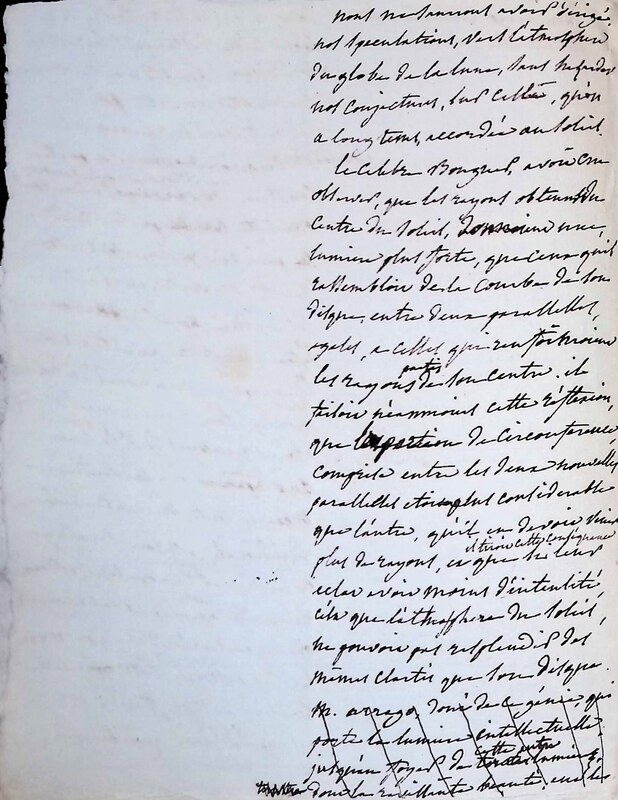 nous ne saurions avoir dirigé
nos speculations, vers l'atmosphere
du globe de la lune, sans
nos conjectures, sur celle, qu'on
a long tems, accordée au soleil.
le celebre Bouguer, avoit cru
observer, que les rayons obtenus du
centre du soleil, donnoient une
lumiere plus forte, que ceux qu'il
rassembloit de la courbe de son
disque, entre deux paralleles,
egales, a celles qui renfermoient
les rayons partis de son centre. il
faisoit néanmoins cette réflexion,
que la portion de circonference,
comprise entre les deux nouvelles
paralleles etoit plus considerable
que l'autre, qu'il en devoit venir
plus de rayons, il tiroit cette consequence
et que si leur
eclat avoit moins d'intensité
c'est que l'atmosphere du soleil,
ne pouvoit pas resplendir des
mêmes clartés que son disque.
M. arrago doué de ce génie, qui
porte la lumiere intellectuelle
jusqu'au foyer de cette autre lumiere,
dont la excellente beauté